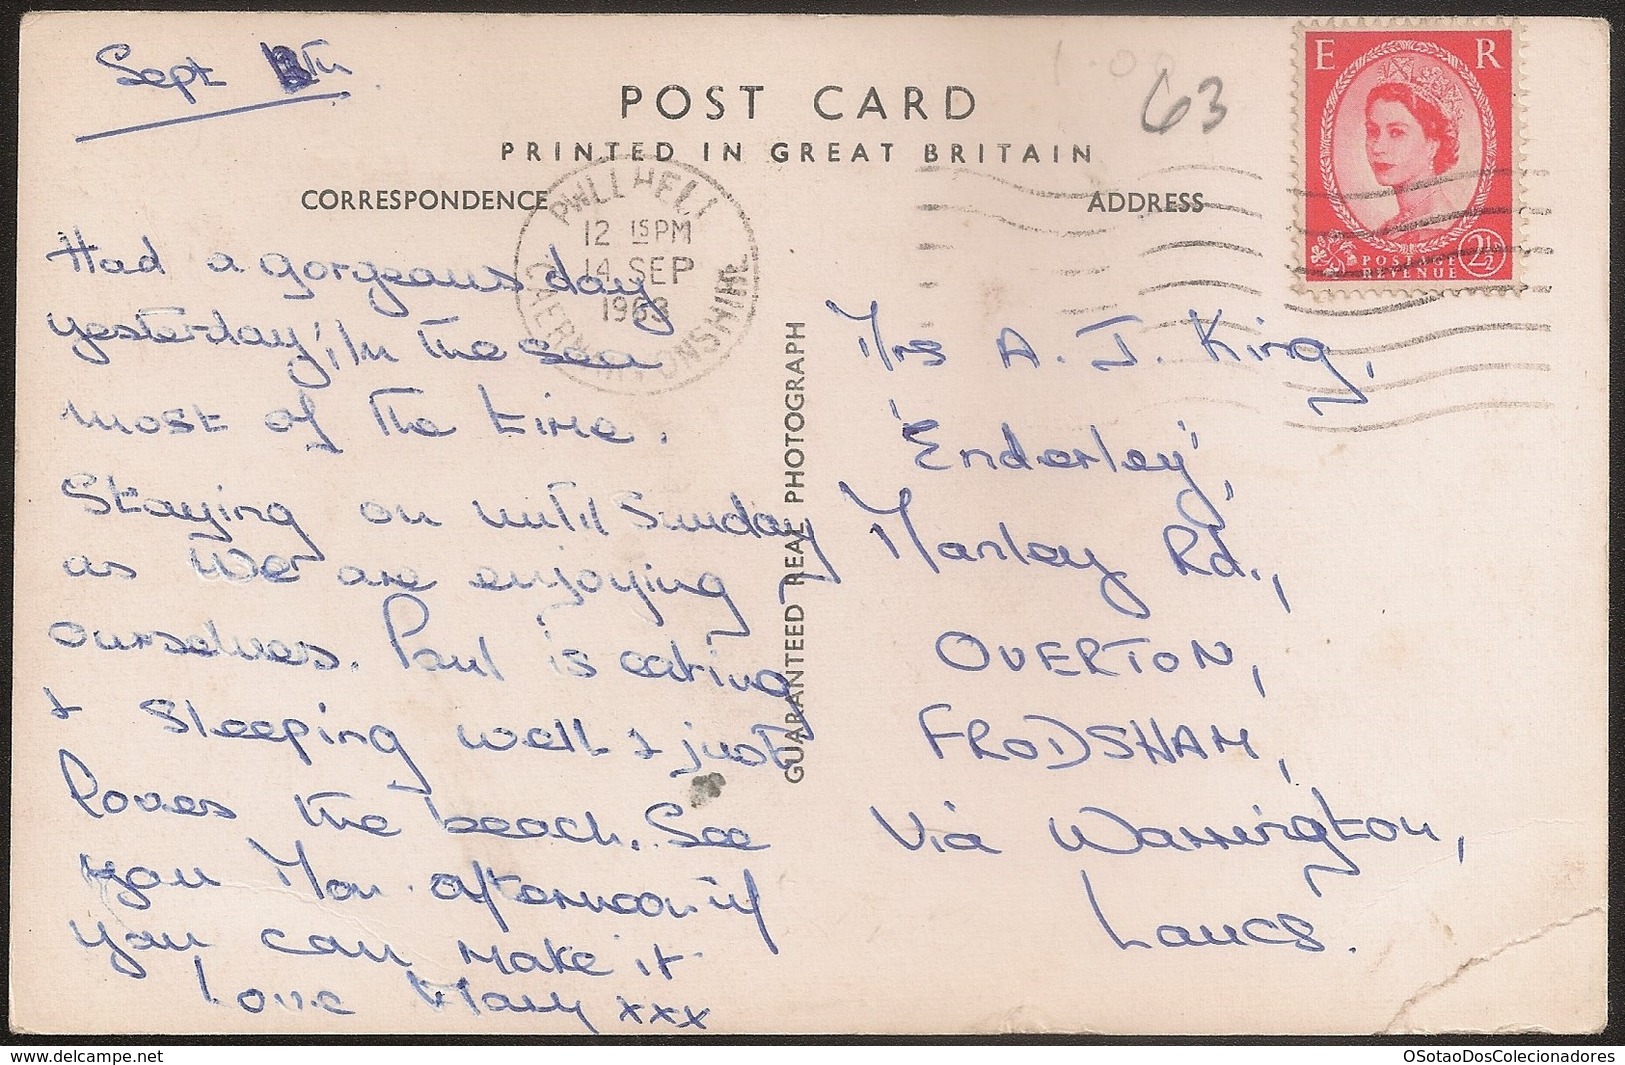 Sept
POST CARD
PRINTED IN GREAT BRITAIN
63
E R
POSTAGE
REVENUE
2½
CORRESPONDENCE
ADDRESS
PWLLHELI
12 15 PM
14 SEP
1963
CAERNARVONSHIRE
Had a gorgeous day
yesterday, in the sea
most of the time.
Staying on until Sunday
as we are enjoying
ourselves. Paul is eating
& sleeping well & just
loves the beach. See
you Mon. afternoon if
you can make it.
Love Mary xxx
GUARANTEED REAL PHOTOGRAPH
Mrs A. J. King,
'Enderley',
Manley Rd.,
OVERTON,
FRODSHAM,
Via Warrington,
Lancs.
www.delcampe.net
OSotaoDosColecionadores